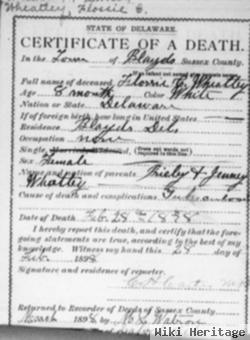 Wheatley, Florrie E.
STATE OF DELAWARE.
CERTIFICATE OF A DEATH.
In the Town of Blayds Sussex County.
Full name of deceased Florrie E. Wheatley
Age 8 month Color White
Nation or State Delaware
If of foreign birth, how long in United States
Residence Blayds Del.
Occupation none
Single,
Sex Female
Name and nation of parents & Jenney
Whatley
Cause of death and complications
Date of Death Feb. 28th 1898
I hereby report this death, and certify that the fore-
going statements are true, according to the best of my
knowledge. Witness my hand this 28 day of
Feb. 1898
Signature and residence of reporter.
Returned to Recorder of Deeds of Sussex County
March 1898 by
Wiki Heritage